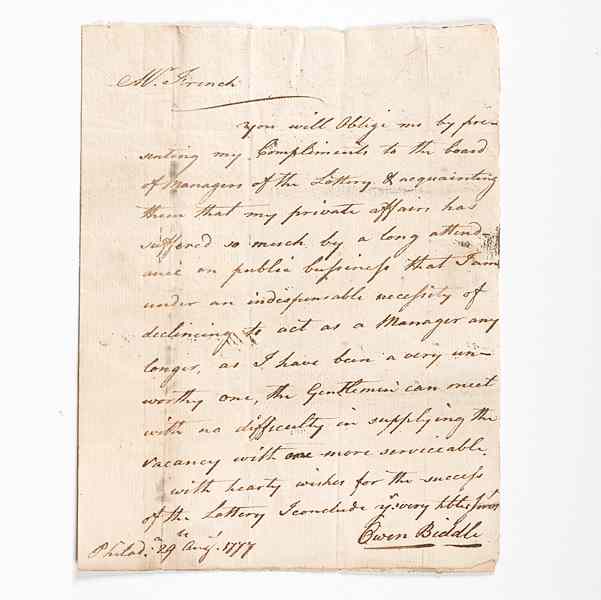 Mr. French
you will Oblige me by pre=
senting my Compliments to the board
of Managers of the Lottery & acquainting
them that my private affairs has
suffered so much by a long attend=
ance on public bussiness that I am
under an indispensable necessity of
declining to act as a Manager any
longer, as I have been a very un=
worthy one, the Gentlemen can meet
with no difficulty in supplying the
vacancy with one more serviceable
with hearty wishes for the success
of the Lottery I conclude yr. very hble Servt
Owen Biddle
Philada. 29th Augt. 1777